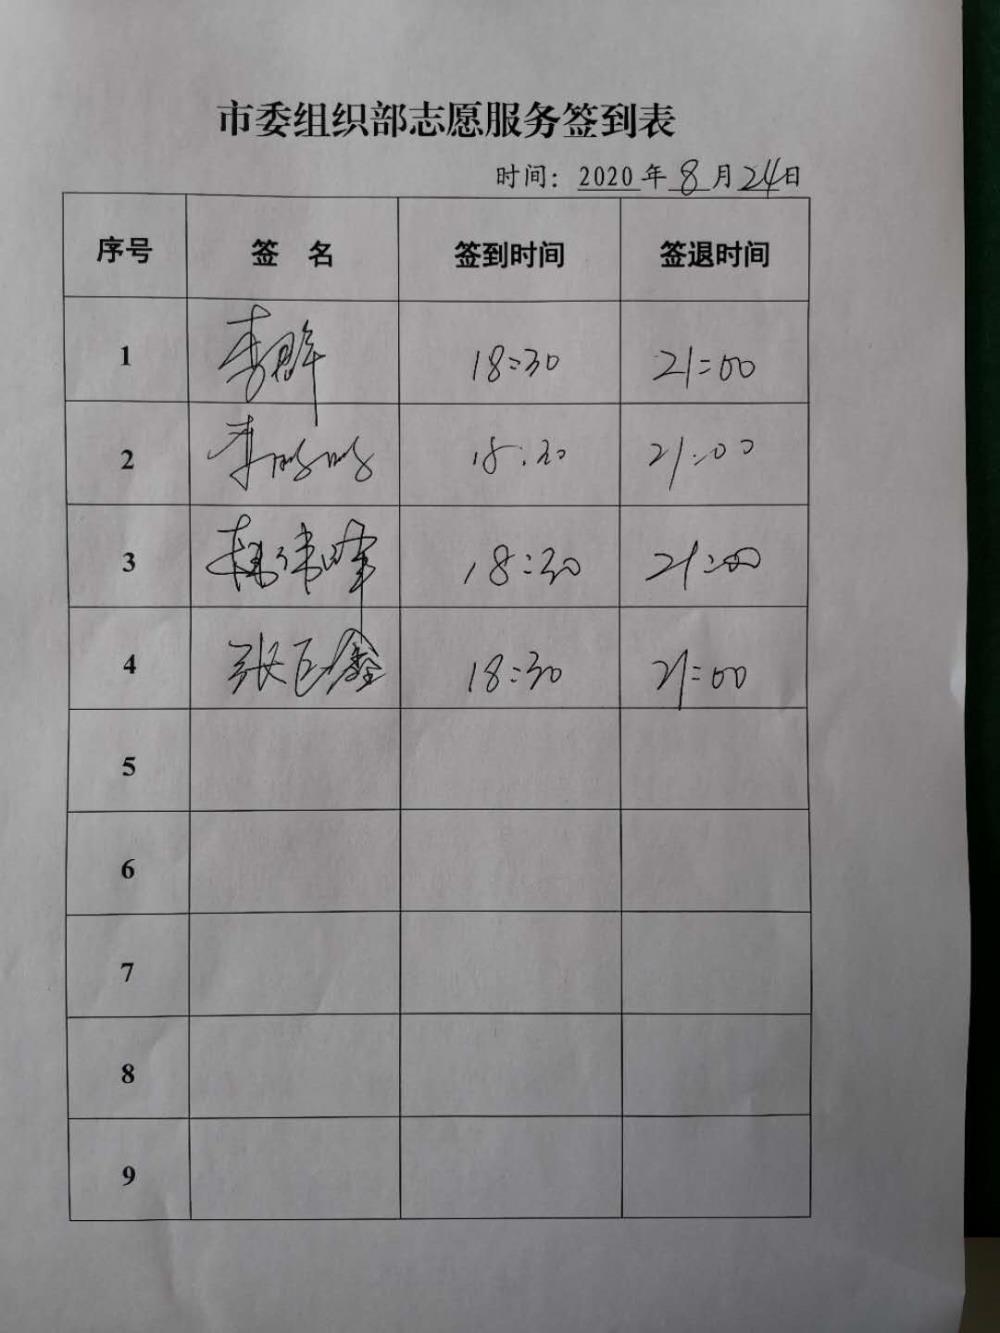 市委组织部志愿服务签到表
时间：2020年8月24日
序号 签 名 签到时间 签退时间
1 李群 18:30 21:00
2 李鹏鹏 18:30 21:00
3 18:30 21:00
4 张巨鑫 18:30 21:00
5
6
7
8
9